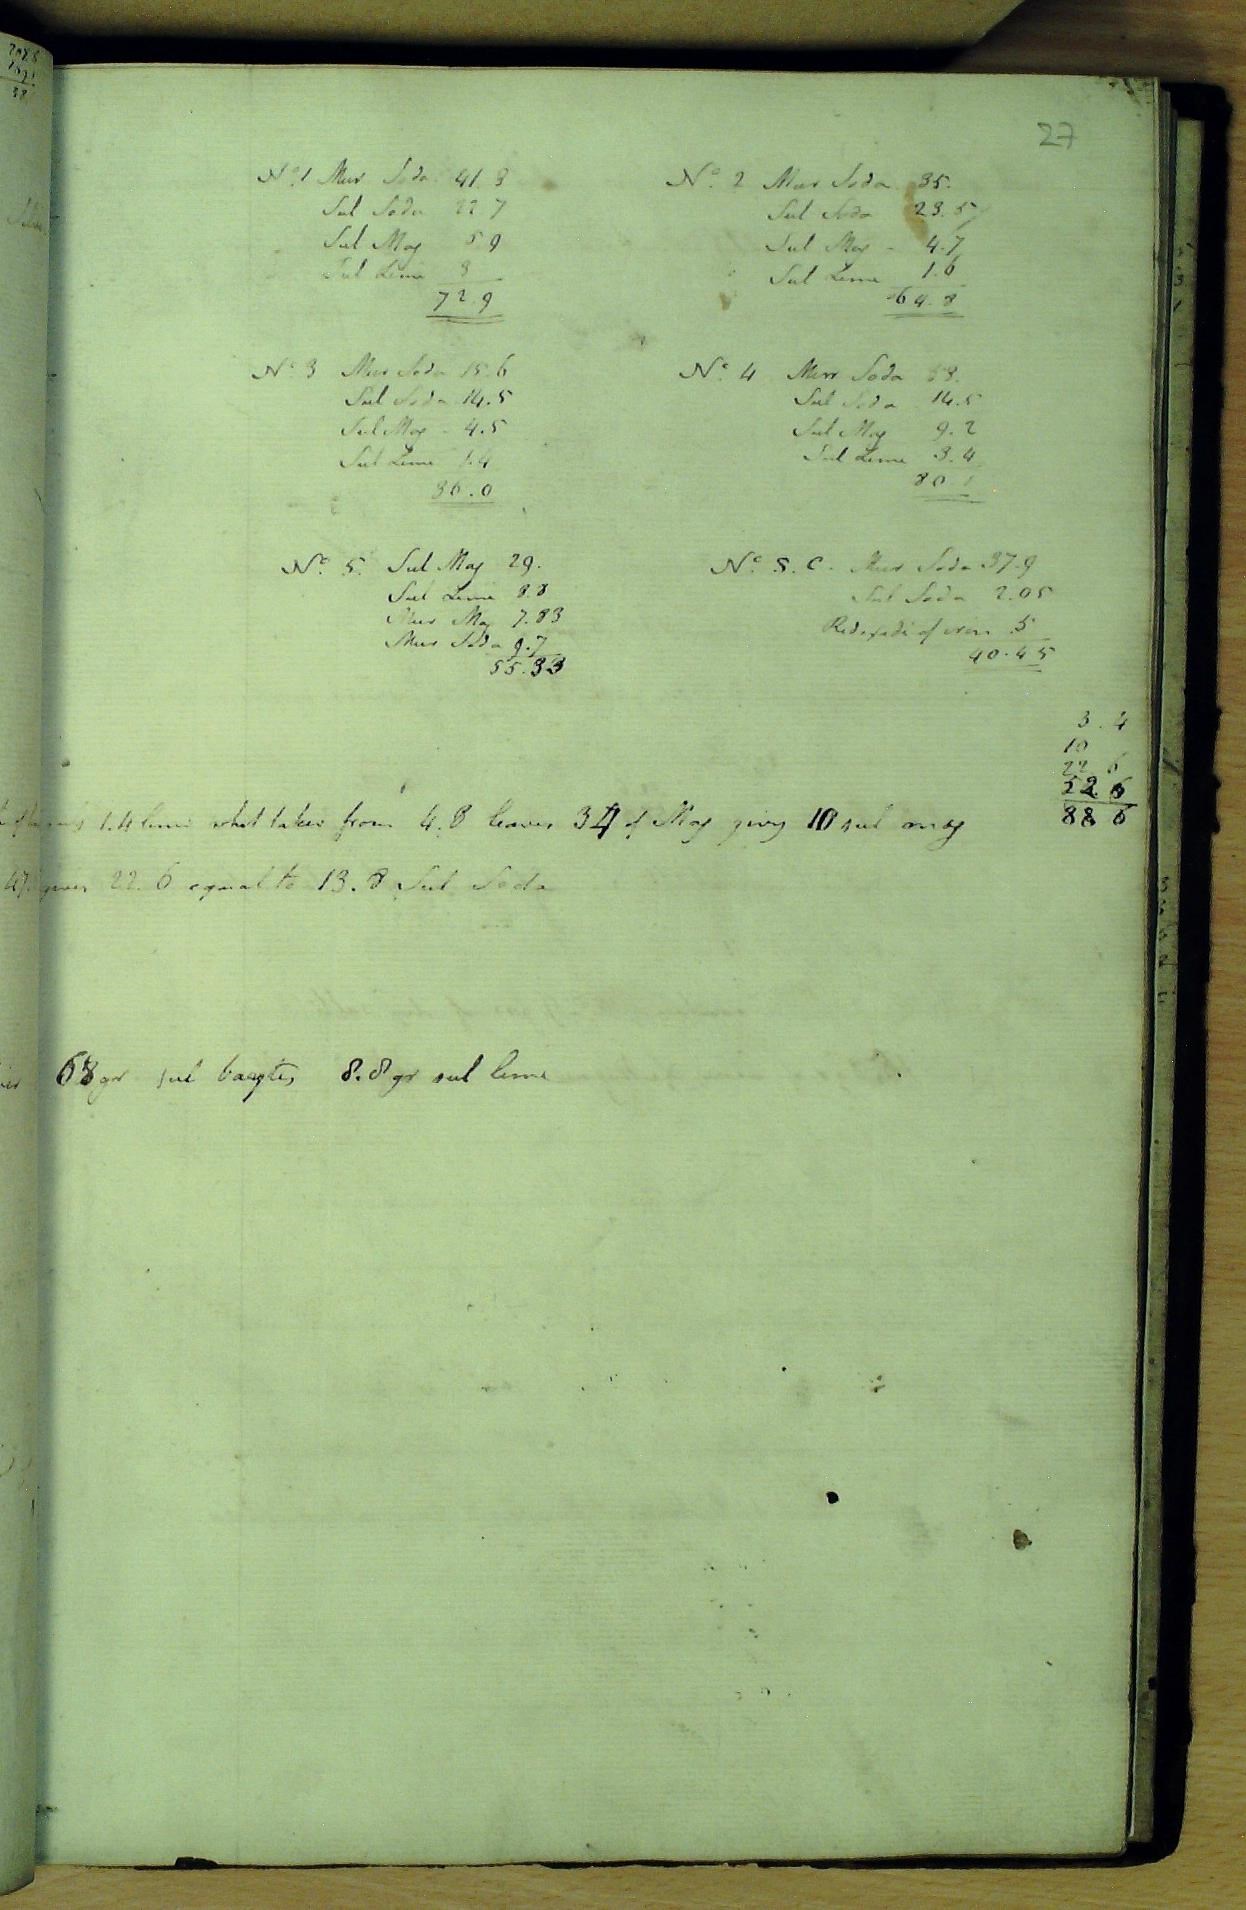 27
No. 1 Mur Soda 41.3
Sul Soda 22.7
Sul Mag 5.9
Sul Lime 3
72.9
No. 2 Mur Soda 35.
Sul Soda 23.5
Sul Mag - 4.7
Sul Lime 1.6
64.8
No. 3 Mur Soda 15.6
Sul Soda 14.5
Sul Mag - 4.5
Sul Lime 1.4
36.0
No. 4 Mur Soda 53.
Sul Soda 14.5
Sul Mag 9.2
Sul Lime 3.4
80.1
No. 5. Sul Mag 29.
Sul Lime 8.8
Mur Mag 7.83
Mur Soda 9.7
55.33
No. S. C. Mur Soda 37.9
Sul Soda 2.05
of iron .5
40.45
3.4
10
22 6
52.6
88 6
1.4 lime what taken from 4.8 leaves 34 of Mag giving 10 sul mag
47 gives 22.6 equal to 13.8 Sul Soda
68 gr sul barytes 8.8 gr sul lime